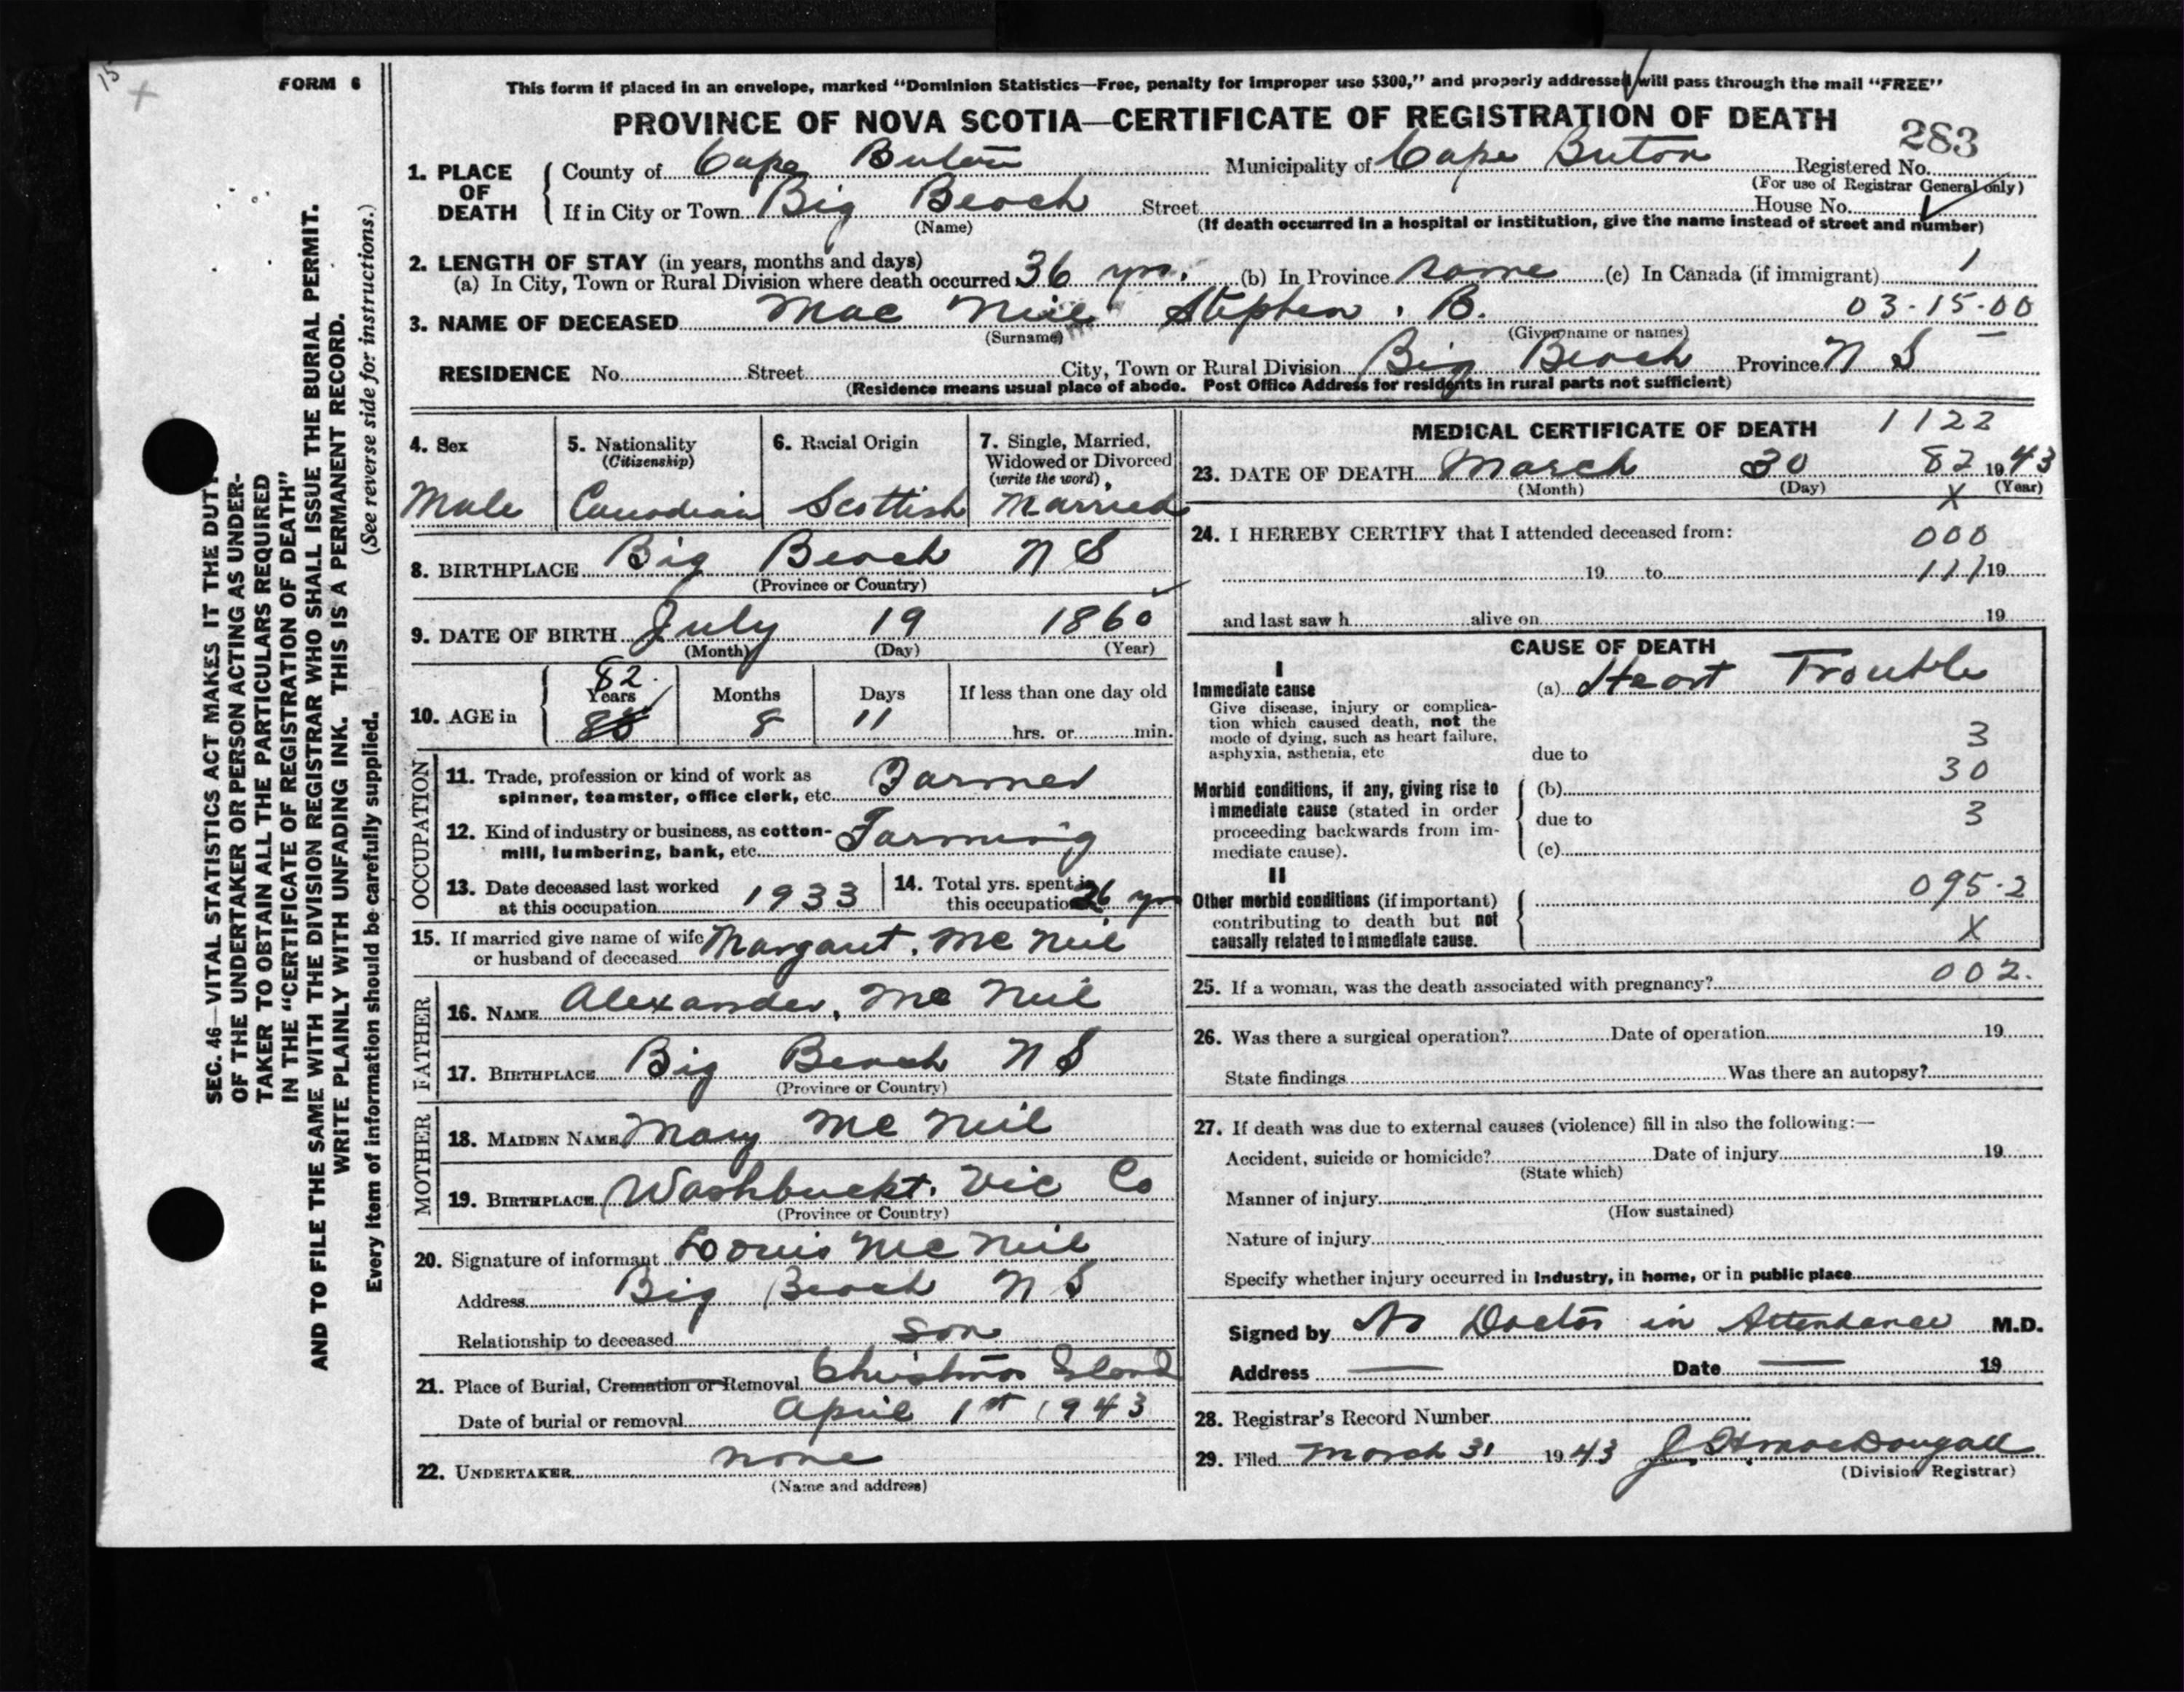 15
FORM 6
This form if placed in an envelope, marked “Dominion Statistics—Free, penalty for improper use $300,” and properly addressed will pass through the mail “FREE”
PROVINCE OF NOVA SCOTIA—CERTIFICATE OF REGISTRATION OF DEATH
283
1. PLACE OF DEATH
County of Cape Buton Municipality of Cape Buton Registered No.
(For use of Registrar General only)
If in City or Town Big Beach Street House No.
(Name) (If death occurred in a hospital or institution, give the name instead of street and number)
2. LENGTH OF STAY (in years, months and days)
(a) In City, Town or Rural Division where death occurred 36 yrs. (b) In Province same (c) In Canada (if immigrant) 1
03-15-00
3. NAME OF DECEASED Mac Neil Stephen . B.
(Surname) (Given name or names)
RESIDENCE No. Street City, Town or Rural Division Big Beach Province N S
(Residence means usual place of abode. Post Office Address for residents in rural parts not sufficient)
4. Sex
Male
5. Nationality
(Citizenship)
Canadian
6. Racial Origin
Scottish
7. Single, Married,
Widowed or Divorced
(write the word)
Married
8. BIRTHPLACE Big Beach N S
(Province or Country)
9. DATE OF BIRTH July 19 1860
(Month) (Day) (Year)
82
10. AGE in Years Months Days If less than one day old
8 11 hrs. or min.
OCCUPATION
11. Trade, profession or kind of work as
spinner, teamster, office clerk, etc. Farmer
12. Kind of industry or business, as cotton-
mill, lumbering, bank, etc. Farming
13. Date deceased last worked
at this occupation 1933
14. Total yrs. spent in
this occupation 36 yrs
15. If married give name of wife
or husband of deceased Margaret. Mc Neil
FATHER
16. NAME Alexander, Mc Neil
17. BIRTHPLACE Big Beach N S
(Province or Country)
MOTHER
18. MAIDEN NAME Mary Mc Neil
19. BIRTHPLACE Washbuckt. Vic Co
(Province or Country)
20. Signature of informant Louis Mc Neil
Address Big Beach N S
Relationship to deceased son
21. Place of Burial, Cremation or Removal Christmas Island
Date of burial or removal April 1st 1943
22. UNDERTAKER none
(Name and address)
MEDICAL CERTIFICATE OF DEATH 1122
23. DATE OF DEATH March 30 82 1943
(Month) (Day) (Year)
X
24. I HEREBY CERTIFY that I attended deceased from:
000
19 to 111 19
and last saw h alive on 19
CAUSE OF DEATH
I
Immediate cause
Give disease, injury or complica-
tion which caused death, not the
mode of dying, such as heart failure,
asphyxia, asthenia, etc
(a) Heart Trouble
3
due to
30
Morbid conditions, if any, giving rise to
immediate cause (stated in order
proceeding backwards from im-
mediate cause).
(b)
due to
3
(c)
II
Other morbid conditions (if important)
contributing to death but not
causally related to immediate cause.
095.2
X
002.
25. If a woman, was the death associated with pregnancy?
26. Was there a surgical operation? Date of operation 19
State findings Was there an autopsy?
27. If death was due to external causes (violence) fill in also the following:—
Accident, suicide or homicide? Date of injury 19
(State which)
Manner of injury
(How sustained)
Nature of injury
Specify whether injury occurred in industry, in home, or in public place
Signed by No Doctor in Attendance M.D.
Address — Date — 19
28. Registrar's Record Number
29. Filed March 31 1943 J. H. MacDougall
(Division Registrar)
SEC. 46—VITAL STATISTICS ACT MAKES IT THE DUTY
OF THE UNDERTAKER OR PERSON ACTING AS UNDER-
TAKER TO OBTAIN ALL THE PARTICULARS REQUIRED
IN THE “CERTIFICATE OF REGISTRATION OF DEATH”
AND TO FILE THE SAME WITH THE DIVISION REGISTRAR WHO SHALL ISSUE THE BURIAL PERMIT.
WRITE PLAINLY WITH UNFADING INK. THIS IS A PERMANENT RECORD.
Every item of information should be carefully supplied. (See reverse side for instructions.)